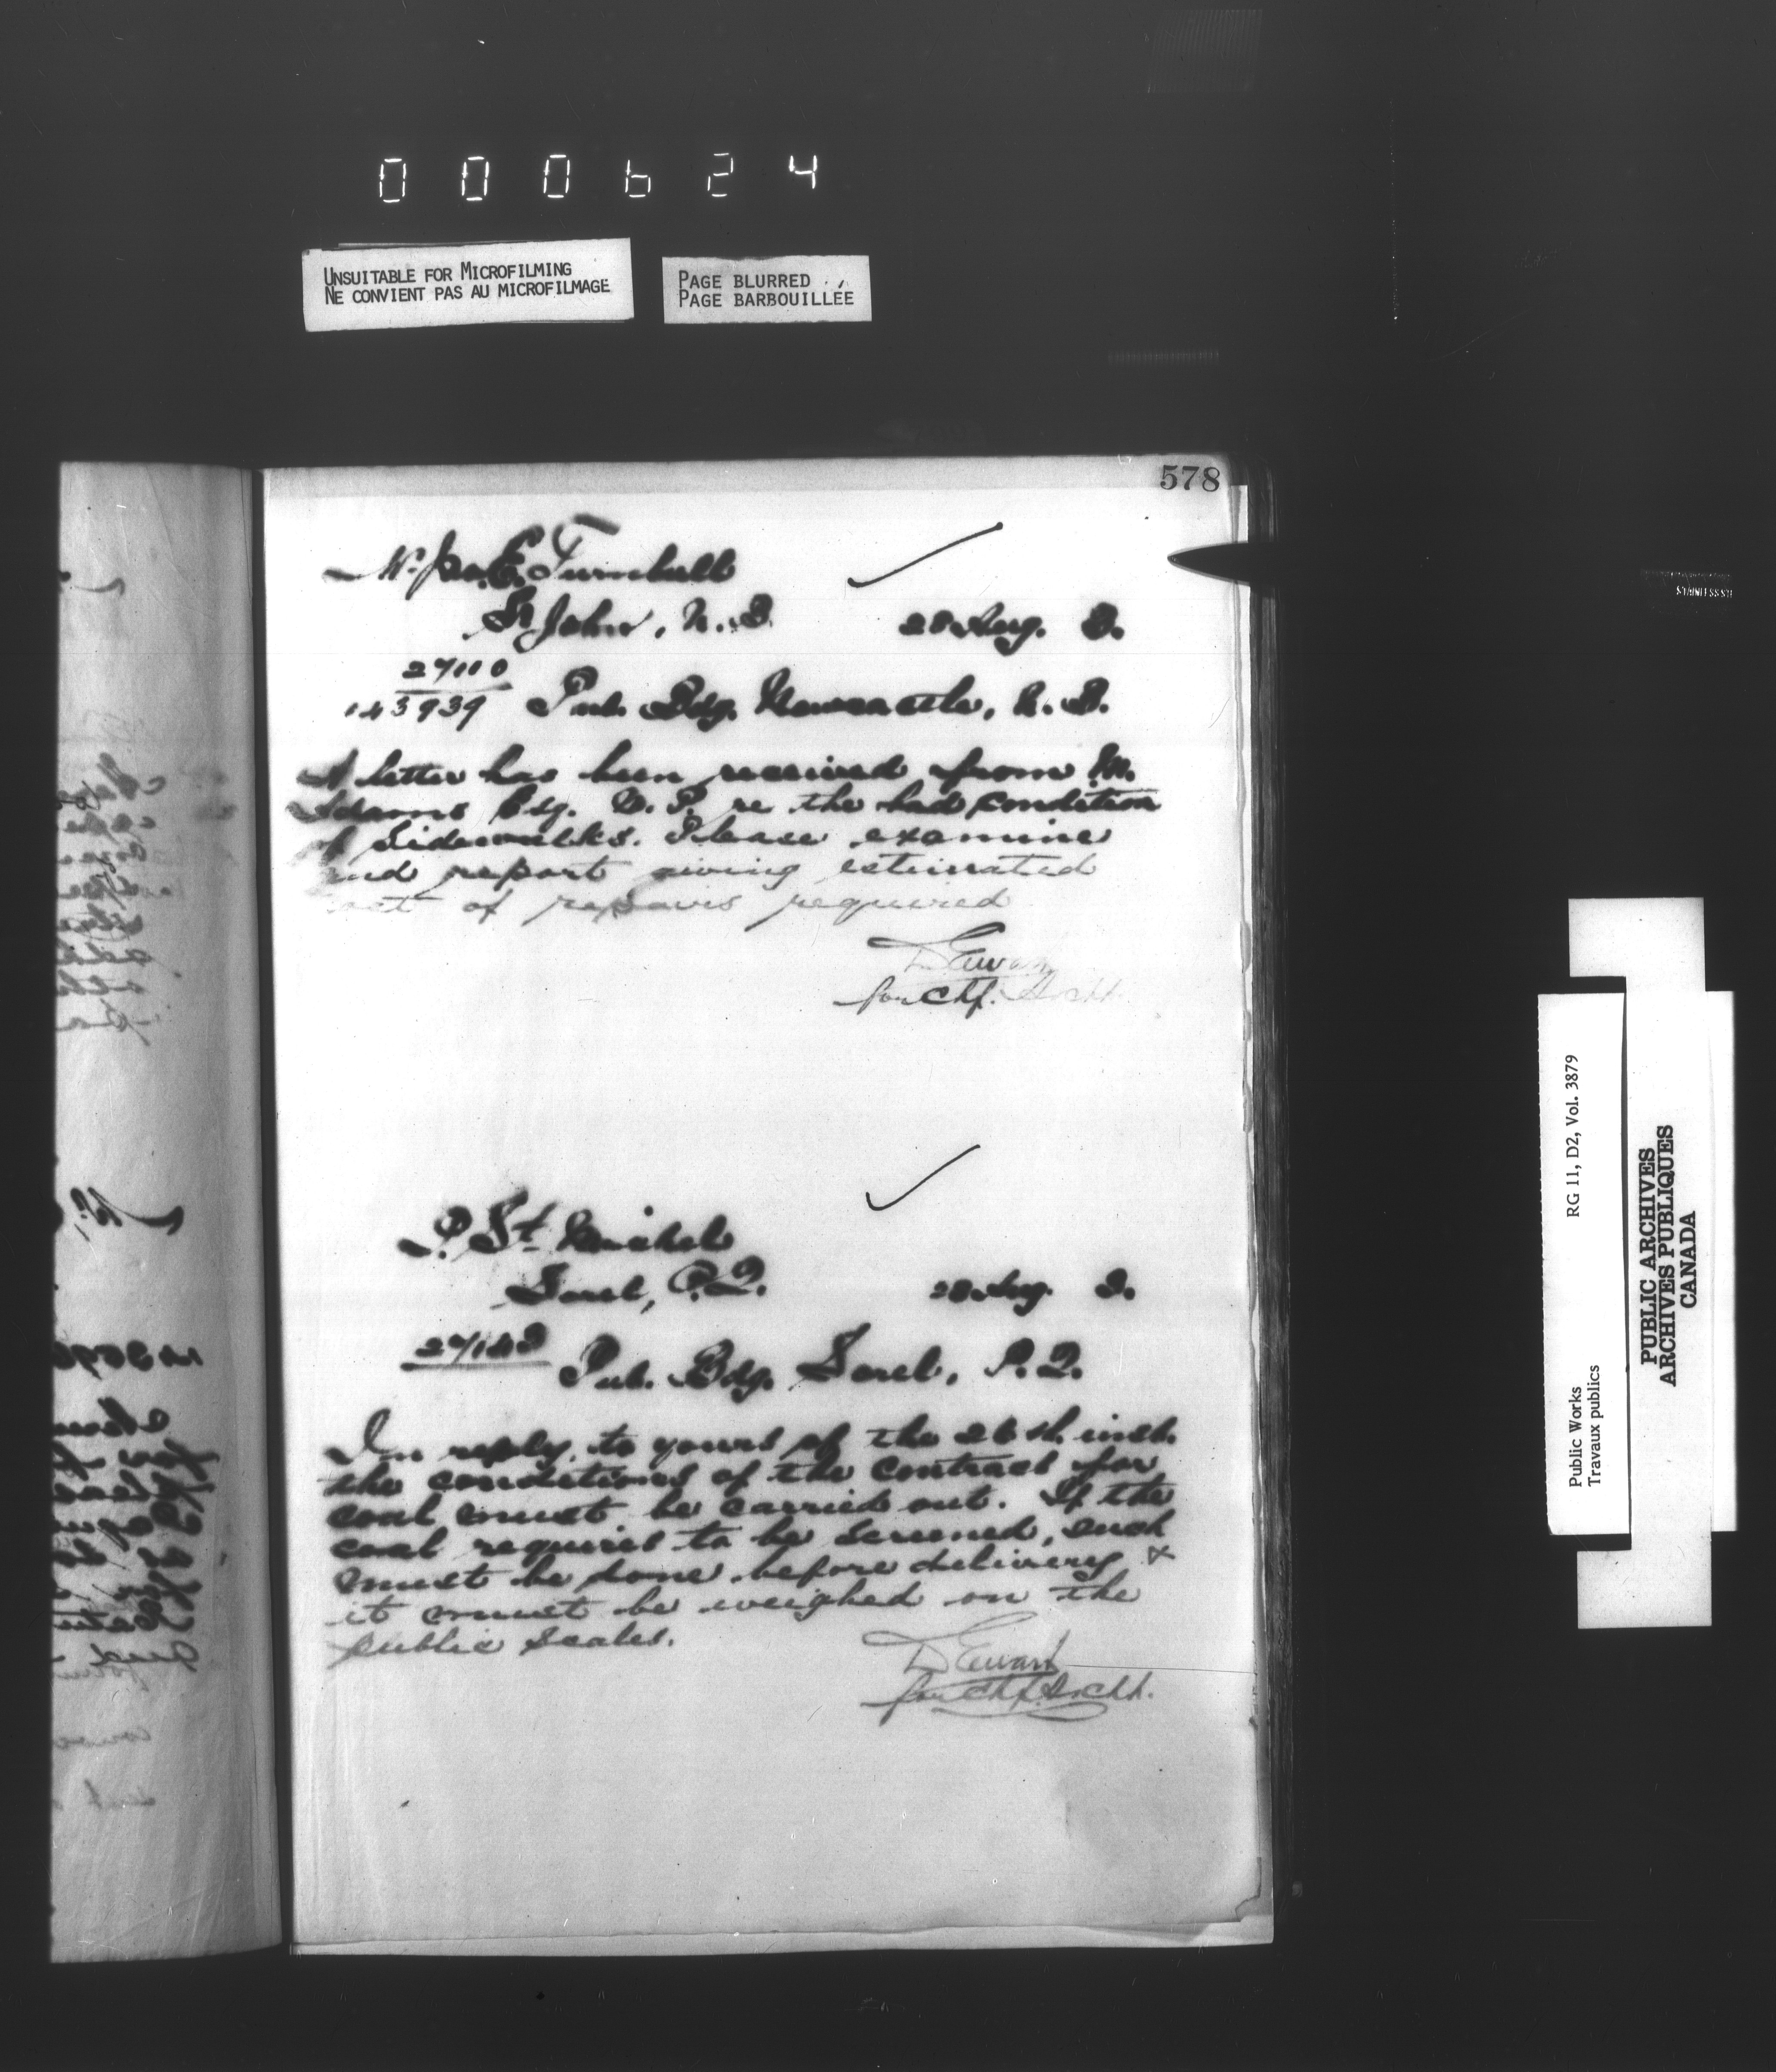 000624
UNSUITABLE FOR MICROFILMING
NE CONVIENT PAS AU MICROFILMAGE
PAGE BLURRED
PAGE BARBOUILLÉE
578
Jno. E. Turnbull
St John, N.B. 28 Aug. 3.
27110
143939 Pub. Bdg. Newcastle, N.B.
A letter has been received from M.
Adams Esq. M.P. re the bad condition
of Sidewalks. Please examine
and report giving estimated
cost of repairs required
D Ewart
for Chf. Archt.
P. St. Michel
Sorel, P.Q. 28 Aug. 3.
27183 Pub. Bdg. Sorel, P.Q.
In reply to yours of the 26th. inst.
the conditions of the contract for
coal must be carried out. If the
coal requires to be screened, such
must be done before delivery &
it must be weighed on the
public scales.
D Ewart
for Chf. Archt.
RG 11, D2, Vol. 3879
Public Works
Travaux publics
PUBLIC ARCHIVES
ARCHIVES PUBLIQUES
CANADA